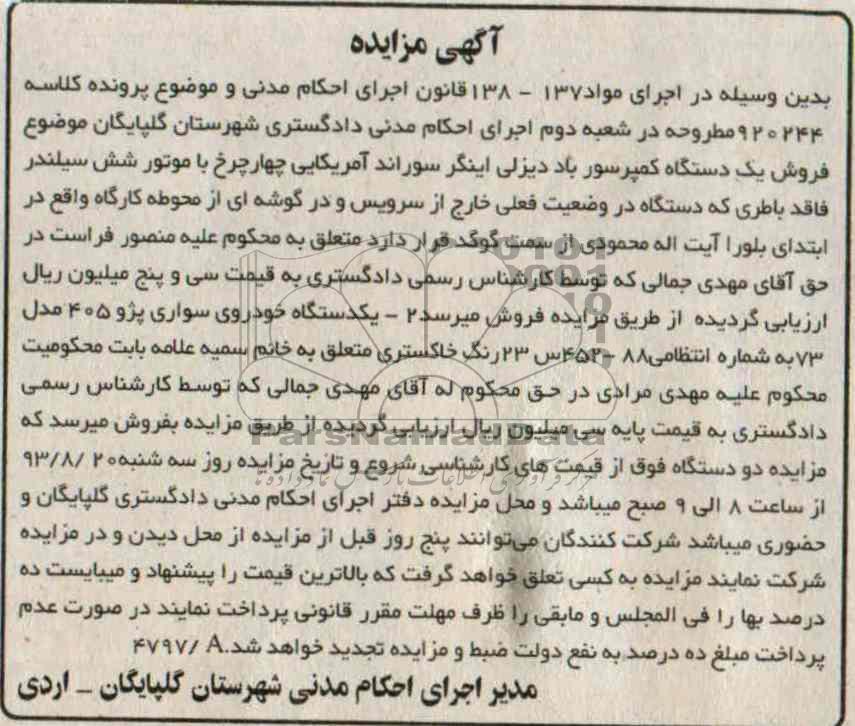 آگهی مزایده
بدین وسیله در اجرای مواد۱۳۷ - ۱۳۸قانون اجرای احکام مدنی و موضوع پرونده کلاسه
۹۲۰۲۴۴مطروحه در شعبه دوم اجرای احکام مدنی دادگستری شهرستان گلپایگان موضوع
فروش یک دستگاه کمپرسور باد دیزلی اینگر سوراند آمریکایی چهارچرخ با موتور شش سیلندر
فاقد باطری که دستگاه در وضعیت فعلی خارج از سرویس و در گوشه ای از محوطه کارگاه واقع در
ابتدای بلورا آیت اله محمودی از سمت گوگد قرار دارد متعلق به محکوم علیه منصور فراست در
حق آقای مهدی جمالی که توسط کارشناس رسمی دادگستری به قیمت سی و پنج میلیون ریال
ارزیابی گردیده از طریق مزایده فروش میرسد۲ - یکدستگاه خودروی سواری پژو ۴۰۵ مدل
۷۳به شماره انتظامی۸۸ -۴۵۲س ۲۳رنگ خاکستری متعلق به خانم سمیه علامه بابت محکومیت
محکوم علیه مهدی مرادی در حق محکوم له آقای مهدی جمالی که توسط کارشناس رسمی
دادگستری به قیمت پایه سی میلیون ریال ارزیابی گردیده از طریق مزایده بفروش میرسد که
مزایده دو دستگاه فوق از قیمت های کارشناسی شروع و تاریخ مزایده روز سه شنبه۲۰ /۹۳/۸
از ساعت ۸ الی ۹ صبح میباشد و محل مزایده دفتر اجرای احکام مدنی دادگستری گلپایگان و
حضوری میباشد شرکت کنندگان می‌توانند پنج روز قبل از مزایده از محل دیدن و در مزایده
شرکت نمایند مزایده به کسی تعلق خواهد گرفت که بالاترین قیمت را پیشنهاد و میبایست ده
درصد بها را فی المجلس و مابقی را ظرف مهلت مقرر قانونی پرداخت نمایند در صورت عدم
پرداخت مبلغ ده درصد به نفع دولت ضبط و مزایده تجدید خواهد شد.۴۷۹۷/ A
مدیر اجرای احکام مدنی شهرستان گلپایگان _ اردی
ParsNamadData